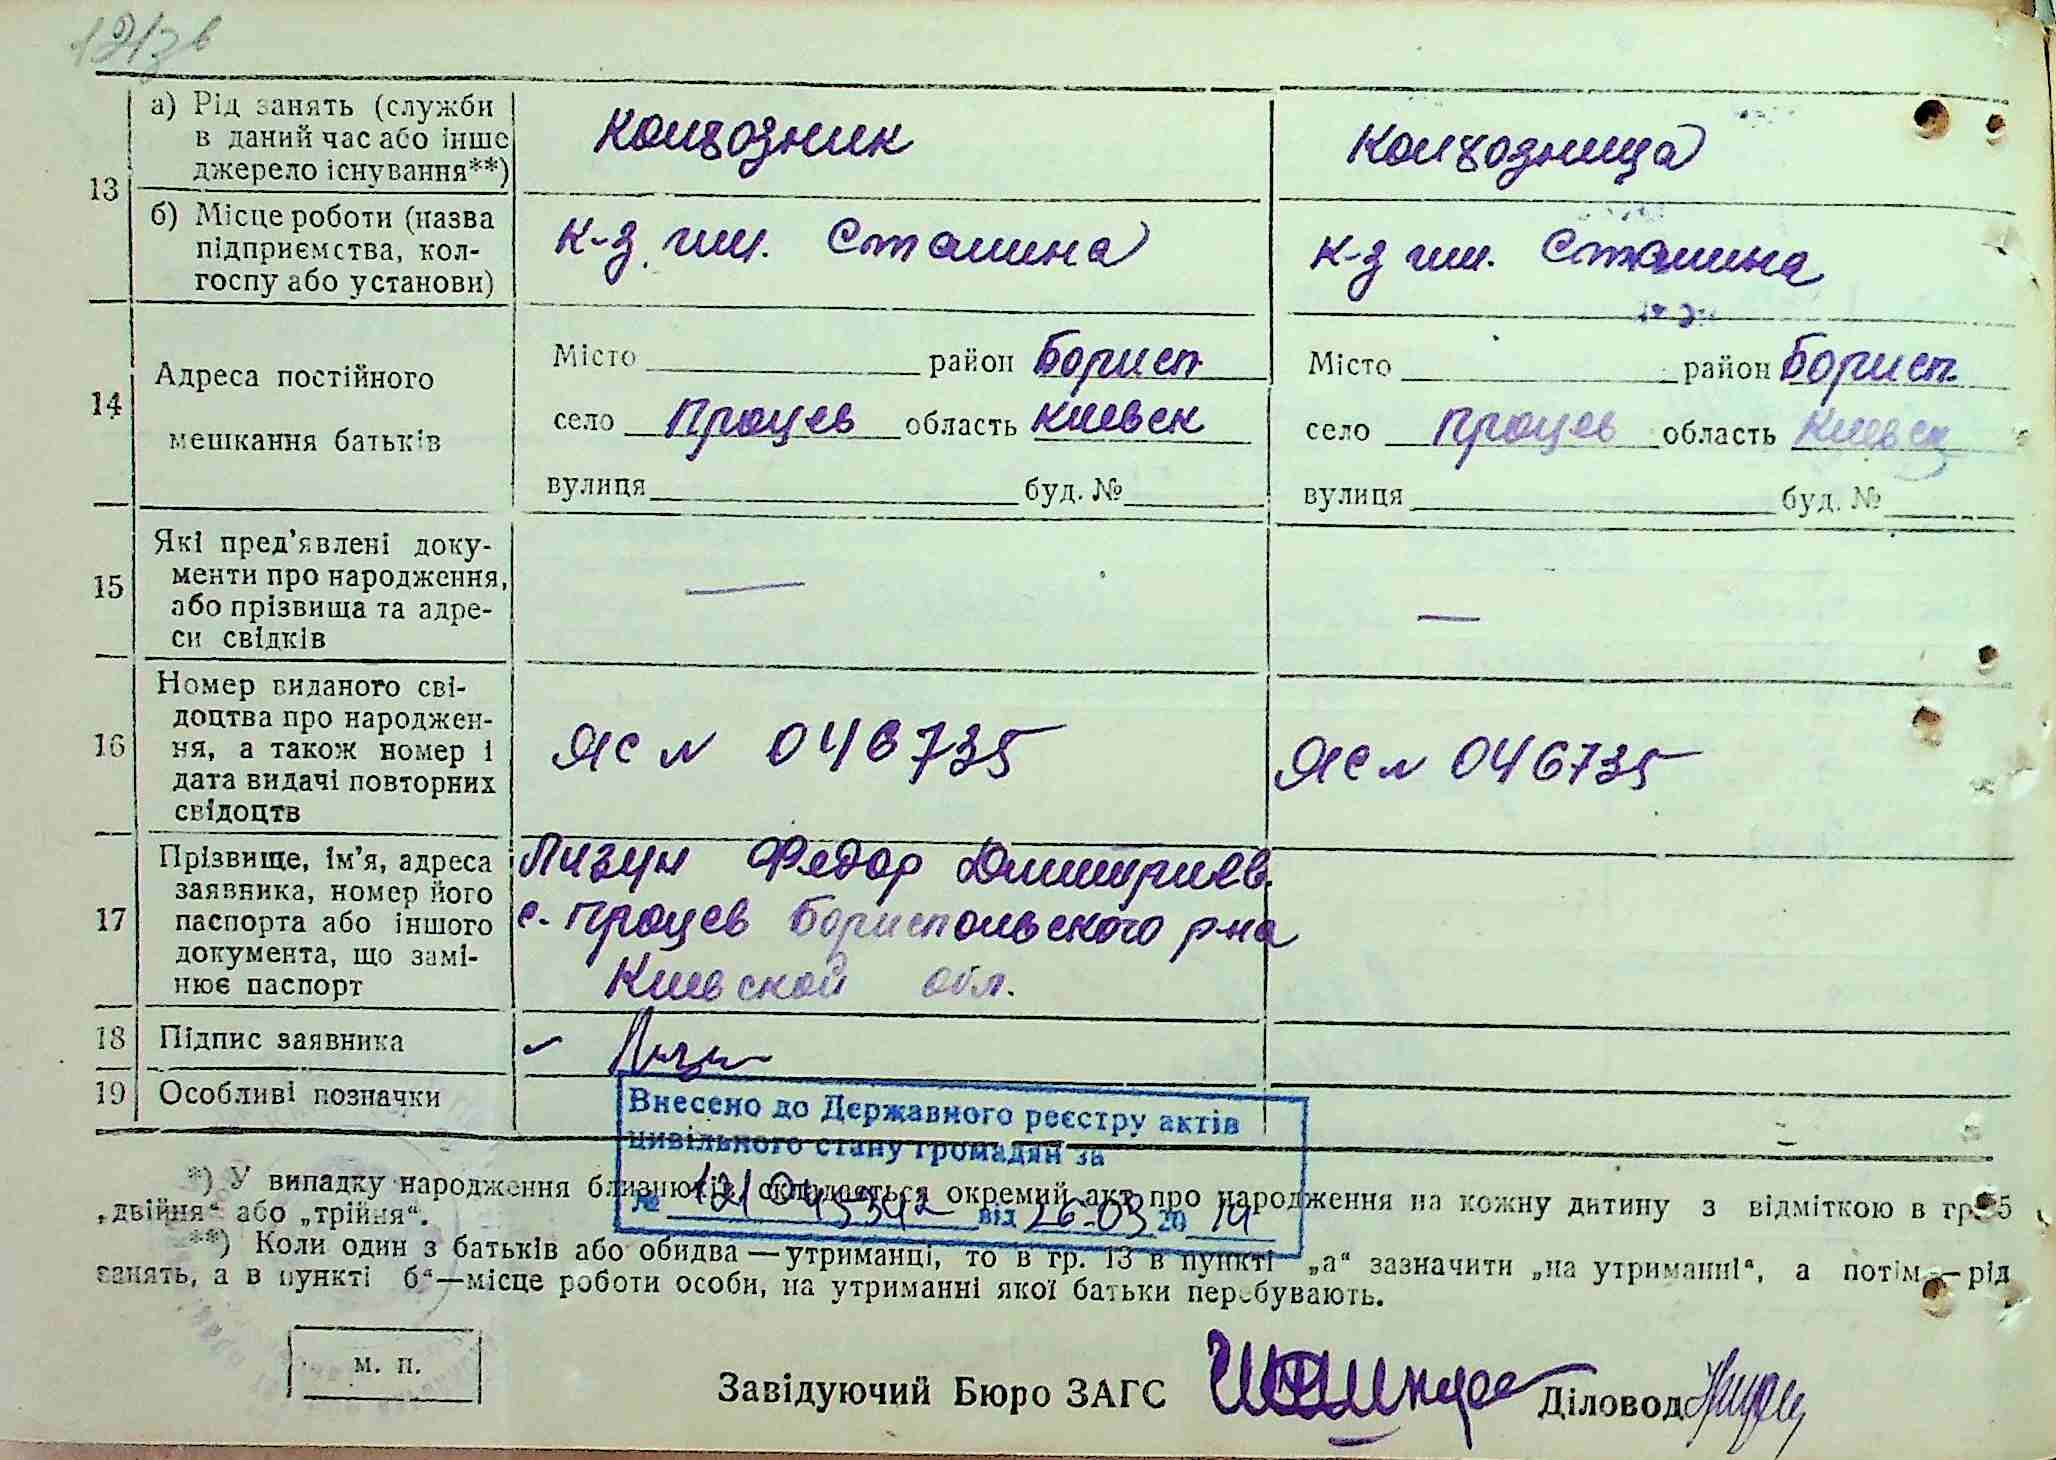 13
а) Рід занять (служби
в даний час або інше
джерело існування**)
колхозник
колхозница
б) Місце роботи (назва
підприємства, кол-
госпу або установи)
к-з им. Сталина
к-з им. Сталина
14
Адреса постійного
мешкання батьків
Місто район Борисп
село Процев область Киевск
вулиця буд. №
Місто район Борисп.
село Процев область Киевск
вулиця буд. №
15
Які пред'явлені доку-
менти про народження,
або прізвища та адре-
си свідків
—
—
16
Номер виданого сві-
доцтва про народжен-
ня, а також номер і
дата видачі повторних
свідоцтв
ЯС № 046735
ЯС № 046735
17
Прізвище, ім'я, адреса
заявника, номер його
паспорта або іншого
документа, що замі-
нює паспорт
Лизун Федор Дмитриев.
с. Процев Бориспольского р-на
Киевской обл.
18 Підпис заявника
Лизун
19 Особливі позначки
Внесено до Державного реєстру актів
цивільного стану громадян за
№ від 26.03 20
*) У випадку народження близнюків складається окремий акт про народження на кожну дитину з відміткою в гр. 5
„двійня“ або „трійня“.
**) Коли один з батьків або обидва — утриманці, то в гр. 13 в пункті „а“ зазначити „на утриманні“, а потім — рід
занять, а в пункті б“—місце роботи особи, на утриманні якої батьки перебувають.
м. п.
Завідуючий Бюро ЗАГС Діловод